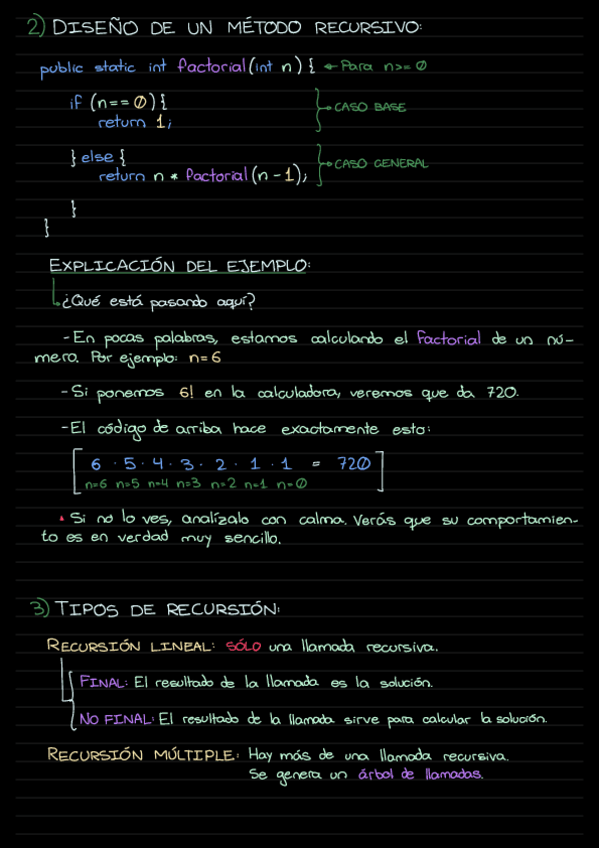 2) DISEÑO DE UN MÉTODO RECURSIVO:
public static int factorial(int n) { ← Para n>= 0
if (n == 0) {
return 1; → CASO BASE
} else {
return n * factorial(n - 1); → CASO GENERAL
}
}
EXPLICACIÓN DEL EJEMPLO:
¿Qué está pasando aquí?
- En pocas palabras, estamos calculando el factorial de un nú-
mero. Por ejemplo: n=6
- Si ponemos 6! en la calculadora, veremos que da 720.
- El código de arriba hace exactamente esto:
[ 6 · 5 · 4 · 3 · 2 · 1 · 1 = 720 ]
n=6 n=5 n=4 n=3 n=2 n=1 n=0
• Si no lo ves, analízalo con calma. Verás que su comportamien-
to es en verdad muy sencillo.
3) TIPOS DE RECURSIÓN:
RECURSIÓN LINEAL: SÓLO una llamada recursiva.
FINAL: El resultado de la llamada es la solución.
NO FINAL: El resultado de la llamada sirve para calcular la solución.
RECURSIÓN MÚLTIPLE: Hay más de una llamada recursiva.
Se genera un árbol de llamadas.